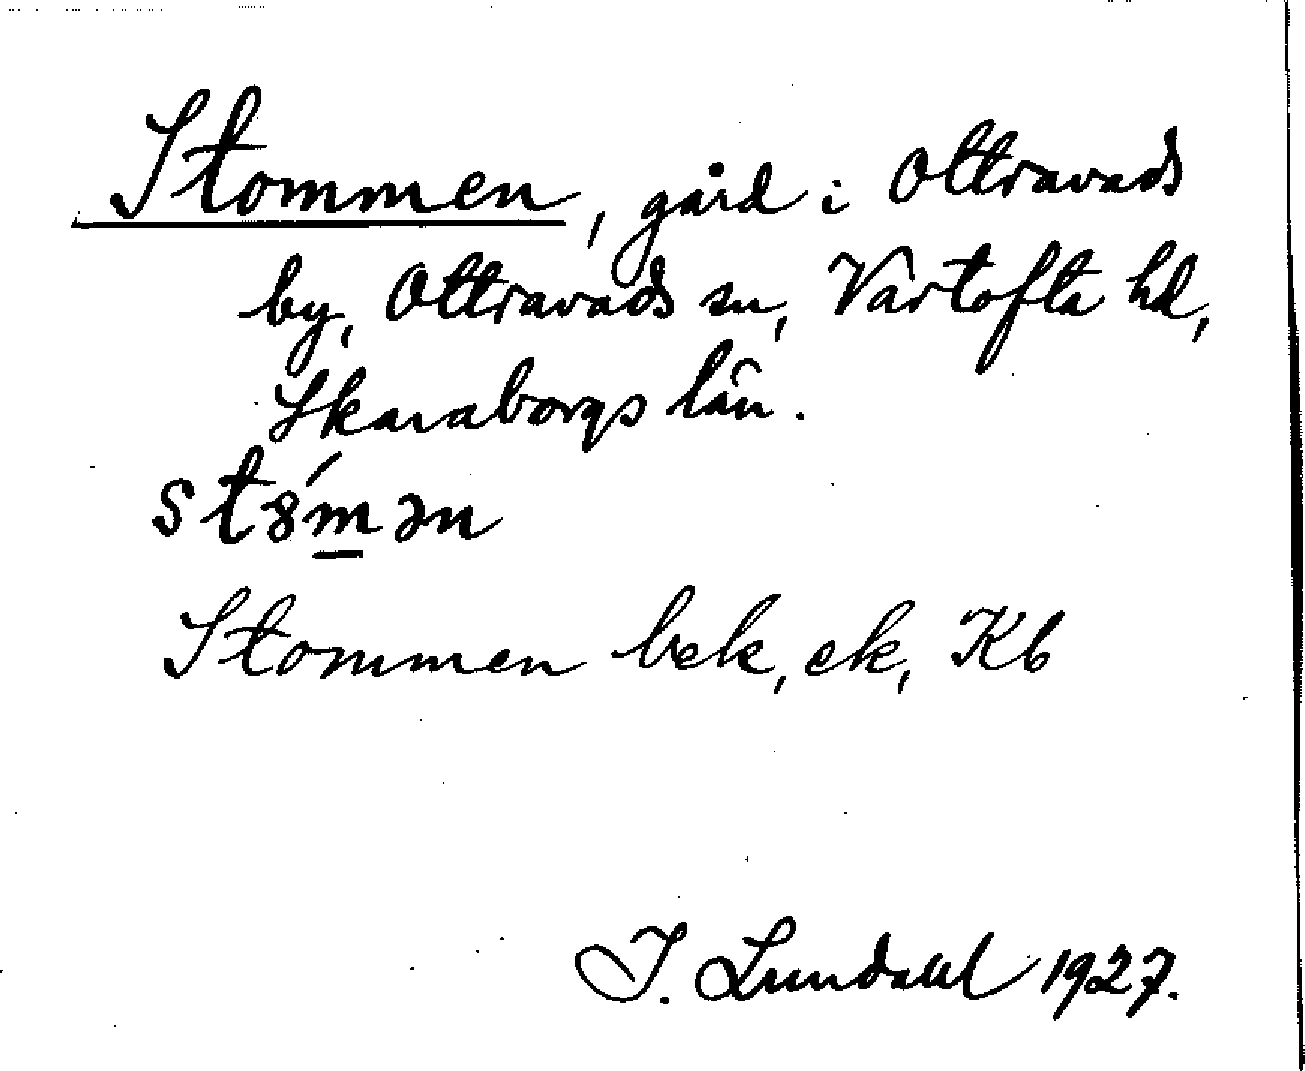 Stommen, gård i Ottravads
by, Ottravads sn, Vartofta hd,
Skaraborgs län.
st8́m̲ən
Stommen bek, ek, Kb
I. Lundahl 1927.